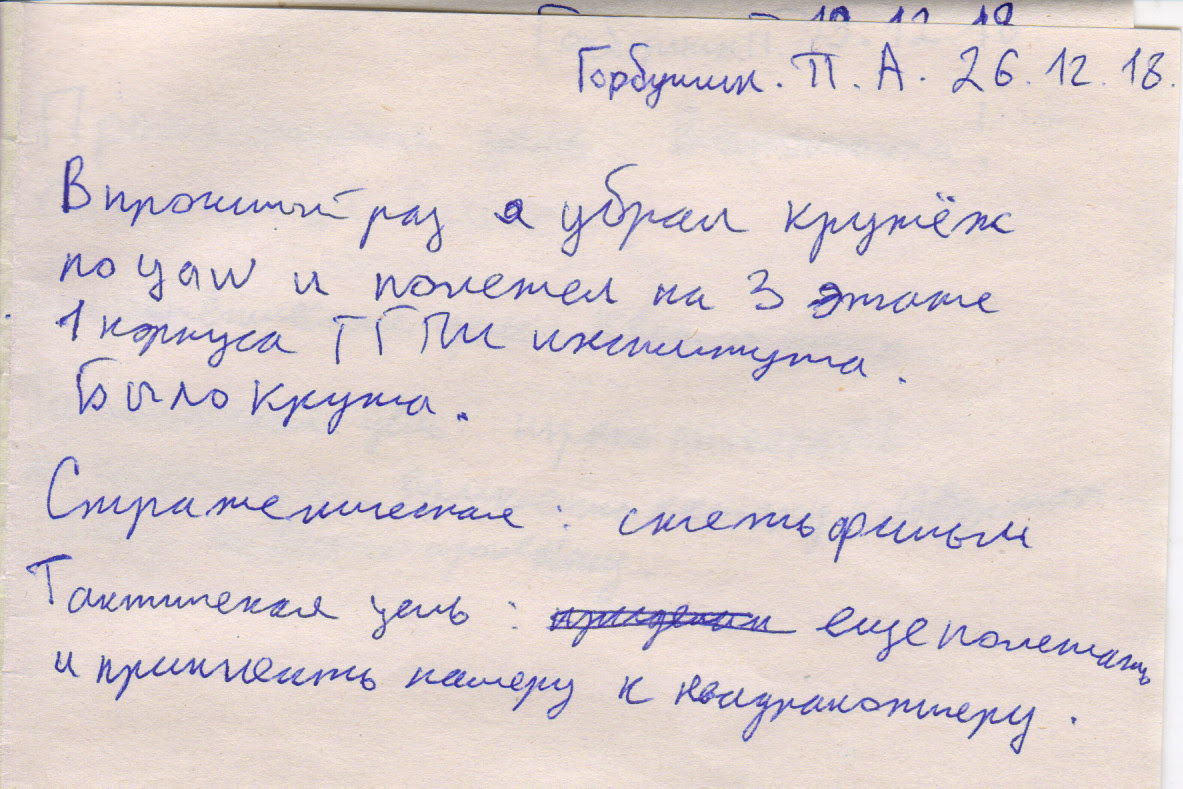 19.12.18
Горбушин. П. А. 26.12.18.
В прошлый раз я убрал крутёж
по yaw и полетел на 3 этаже
1 корпуса ТГПИ института.
Было круто.
Стратегическая: снять фильм
Тактическая цель: еще полетать
и прицепить камеру к квадракоптеру.